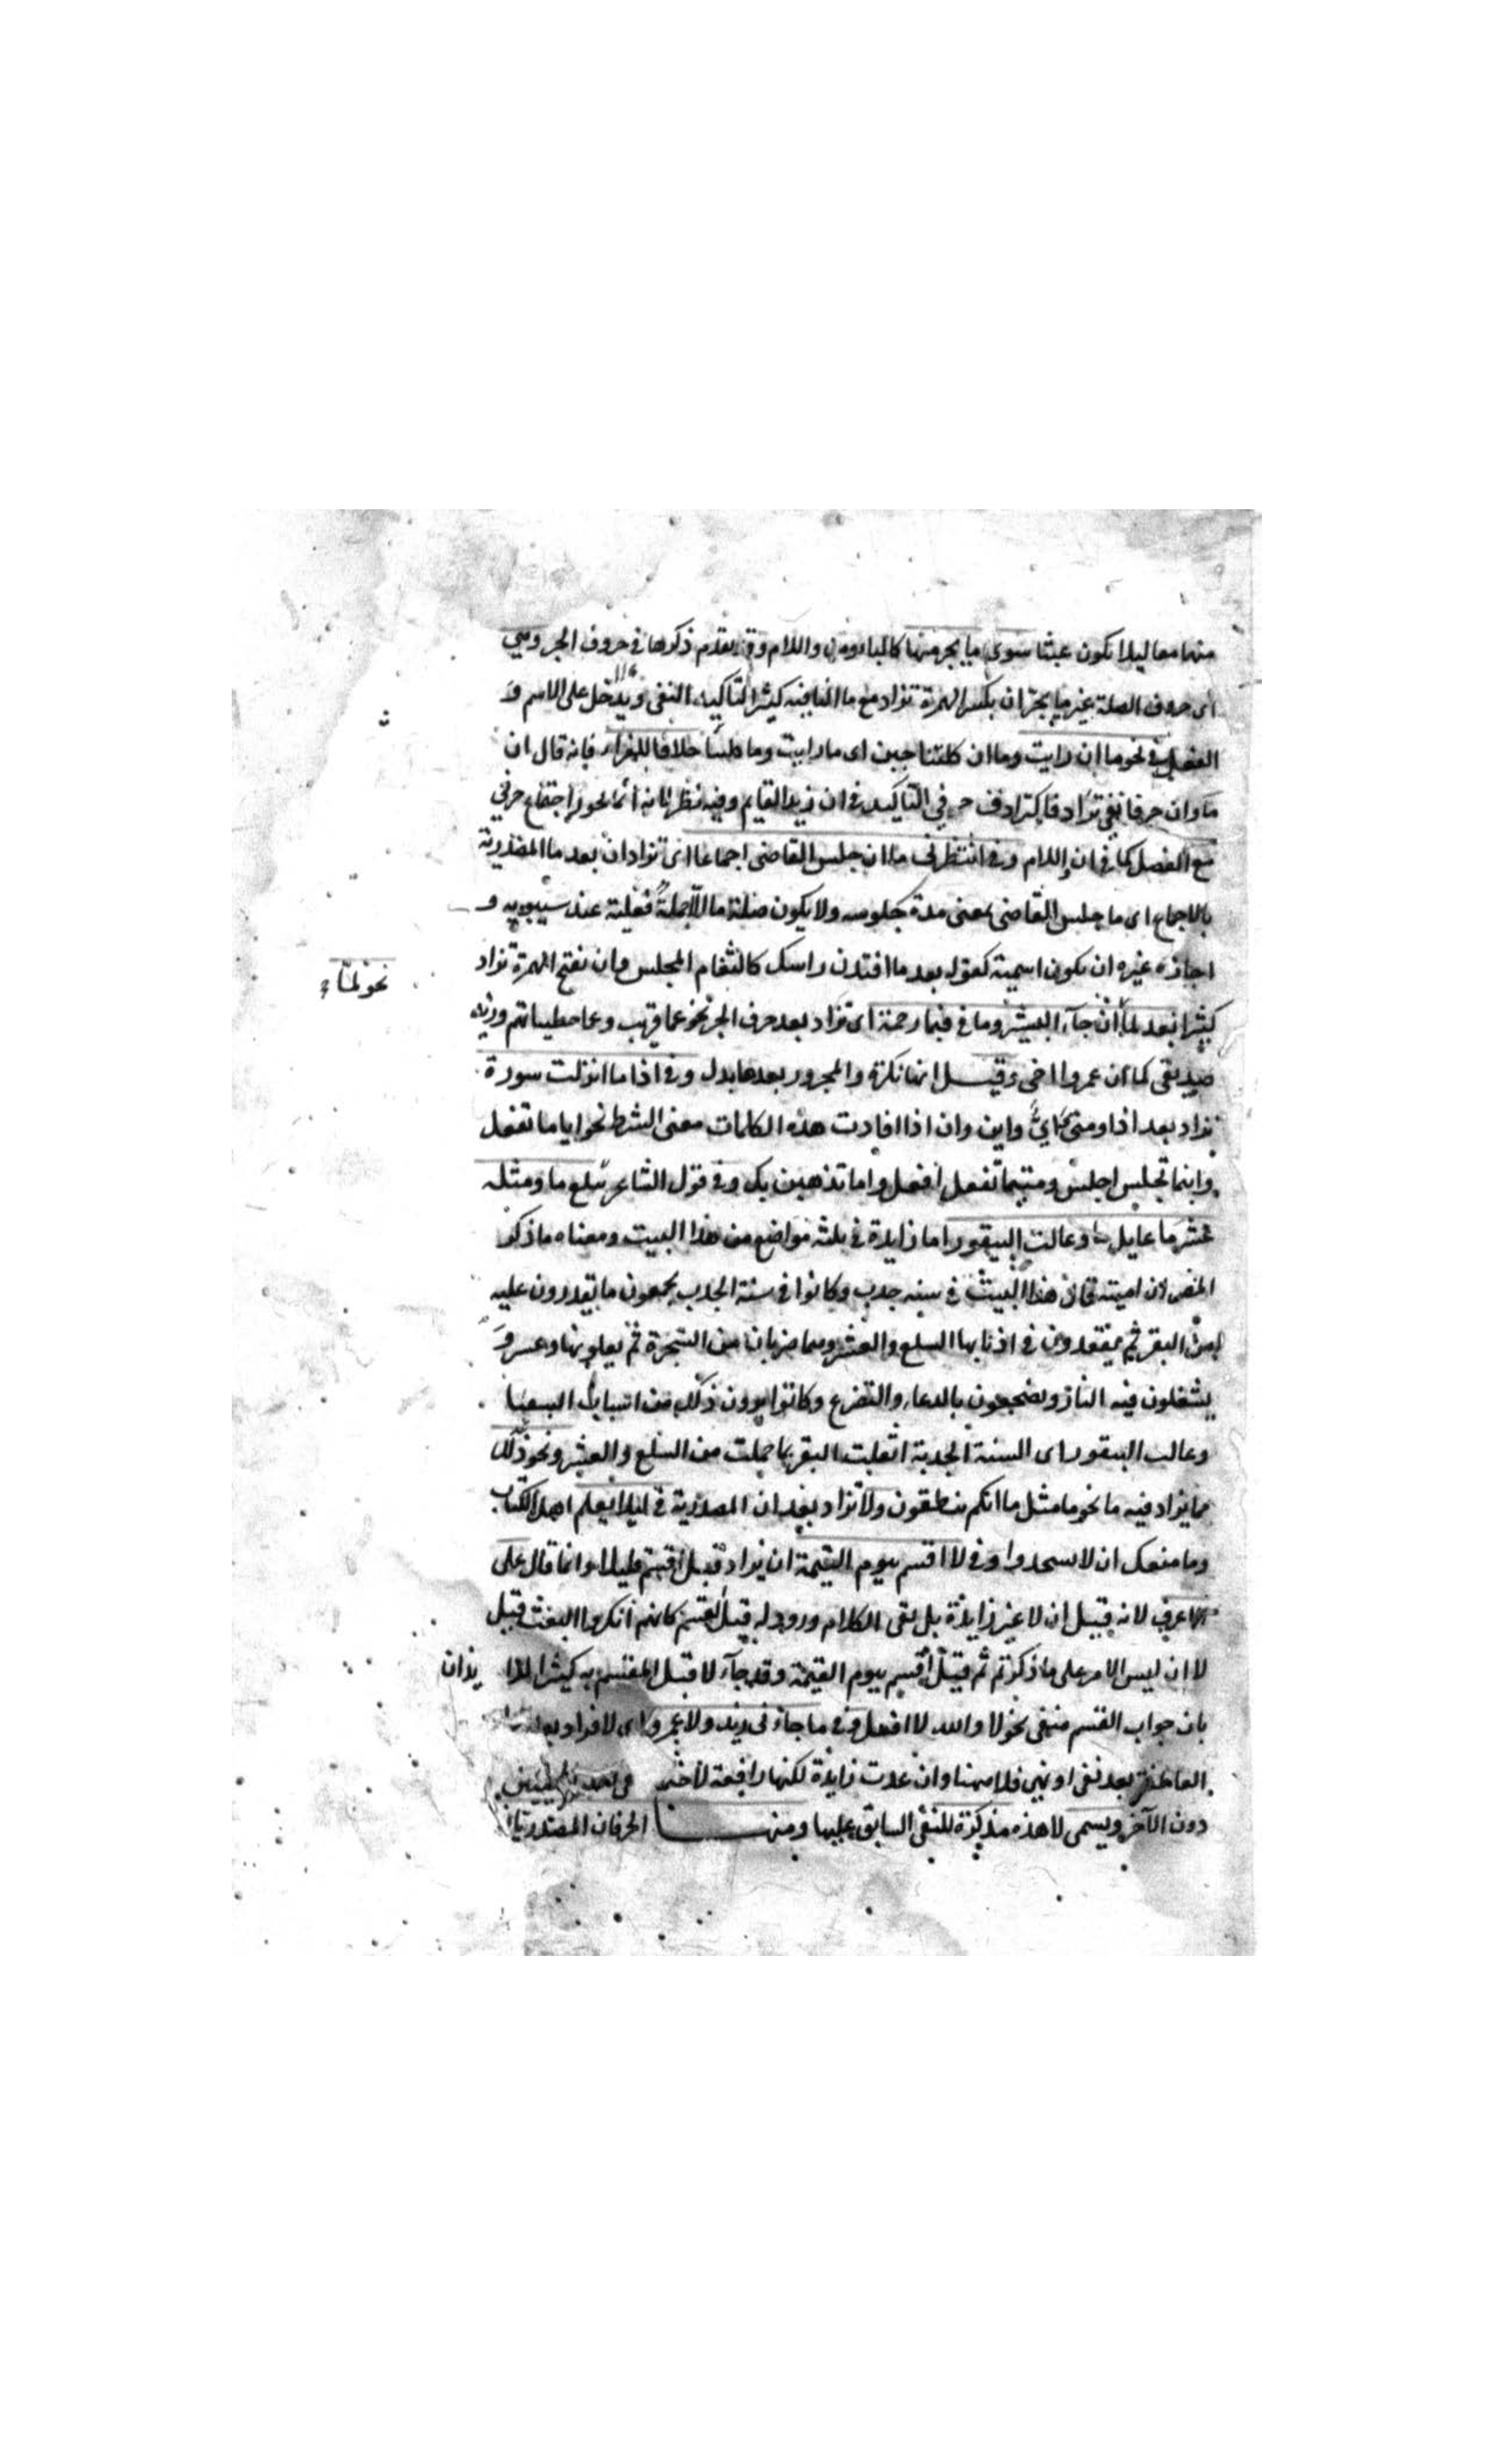 منها معا ليلا يكون عبثا سوى ما يجر منها كالباء ومن واللام وقد تقدم ذكرها في حروف الجر وهي
اى حروف الصلة غير ما يجر ان بكسر الهمزة تزاد مع ما النافية كثيرا لتاكيد النفى ويدخل على الاسم و
الفعل في نحو ما ان رايت وما ان كلتنا جبن اى ما رايت وما طبنا خلافا للفراء فانه قال ان
ما وان حرفا نفى ترادفا كترادف حرفي التاكيد في ان زيدا لقايم وفيه نظر لانه انما يجوز اجتماع حرفي
مع الفصل كما في ان واللام وفي انتظرني ما ان جلس القاضى اجماعا اى تزاد ان بعد ما المصدرية
بالاجماع اى ما جلس القاضى بمعنى مدة جلوسه ولا يكون صلة ما الا جملة فعلية عند سيبويه و
اجاز غيره ان يكون اسمية كقوله بعد ما افنان راسك كالثغام المخلس وان بفتح الهمزة تزاد
نحو لما
كثيرا بعد لما ان جاء البشير وما في فبما رحمة اى تزاد بعد حرف الجر نحو عما قريب ومما خطيئاتهم وزيد
صديقى كما ان عمروا اخى وقيل انها نكرة والمجرور بعدها بدل وفي اذا ما انزلت سورة
تزاد بعد اذا ومتى واىّ واين وان اذا افادت هذه الكلمات معنى الشرط نحو ايا ما تفعل
واينما تجلس اجلس ومتيما تفعل افعل واما تذهبن بك وفي قول الشاعر سلع ما ومثله
عشر ما عايل ما وعالت البيقورا ما زايدة في ثلثة مواضع من هذا البيت ومعناه ما ذكر
المص لان امية قال هذا البيت في سنة جدب وكانوا في سنة الجدب يجمعون ما يقدرون عليه
من البقر ثم يعقدون في اذنابها السلع والعشر وهما ضربان من الشجرة ثم يعلون بها
يشعلون فيه النار ويضجعون بالدعاء والتضرع وكانوا يرون ذلك من اسباب السقيا
وعالت البيقورا اى السنة الجدبة اثقلت البقر بما حملت من السلع والعشر ونحو ذلك
مما يزاد فيه ما نحو ما مثل ما انكم تنطقون ولا تزاد بعد ان المصدرية في ليلا يعلم اهل الكتاب
وما منعك ان لا تسجدوا وفي لا اقسم بيوم القيمة ان يزاد قبل اقسم قليلا وانما قال على
الاعرف لانه قيل ان لا غير زايدة بل نفى الكلام ورود له قبل القسم كانهم انكروا البعث فقيل
لا ان ليس الامر على ما ذكرتم ثم قيل اقسم بيوم القيمة وقد جاء لا قبل المقسم به كثيرا ايذان
بان جواب القسم منفى نحو لا والله لا افعل وفي ما جاءنى زيد ولا عمرو اى لا تزاد بعد
العاطفة بعد نفى او نهى فلا ههنا وان عدت زايدة لكنها رافعة لاحتمال
دون الآخر ويسمى لا هذه مذكرة للنفى السابق عليها ومنها الحرفان المصدريان